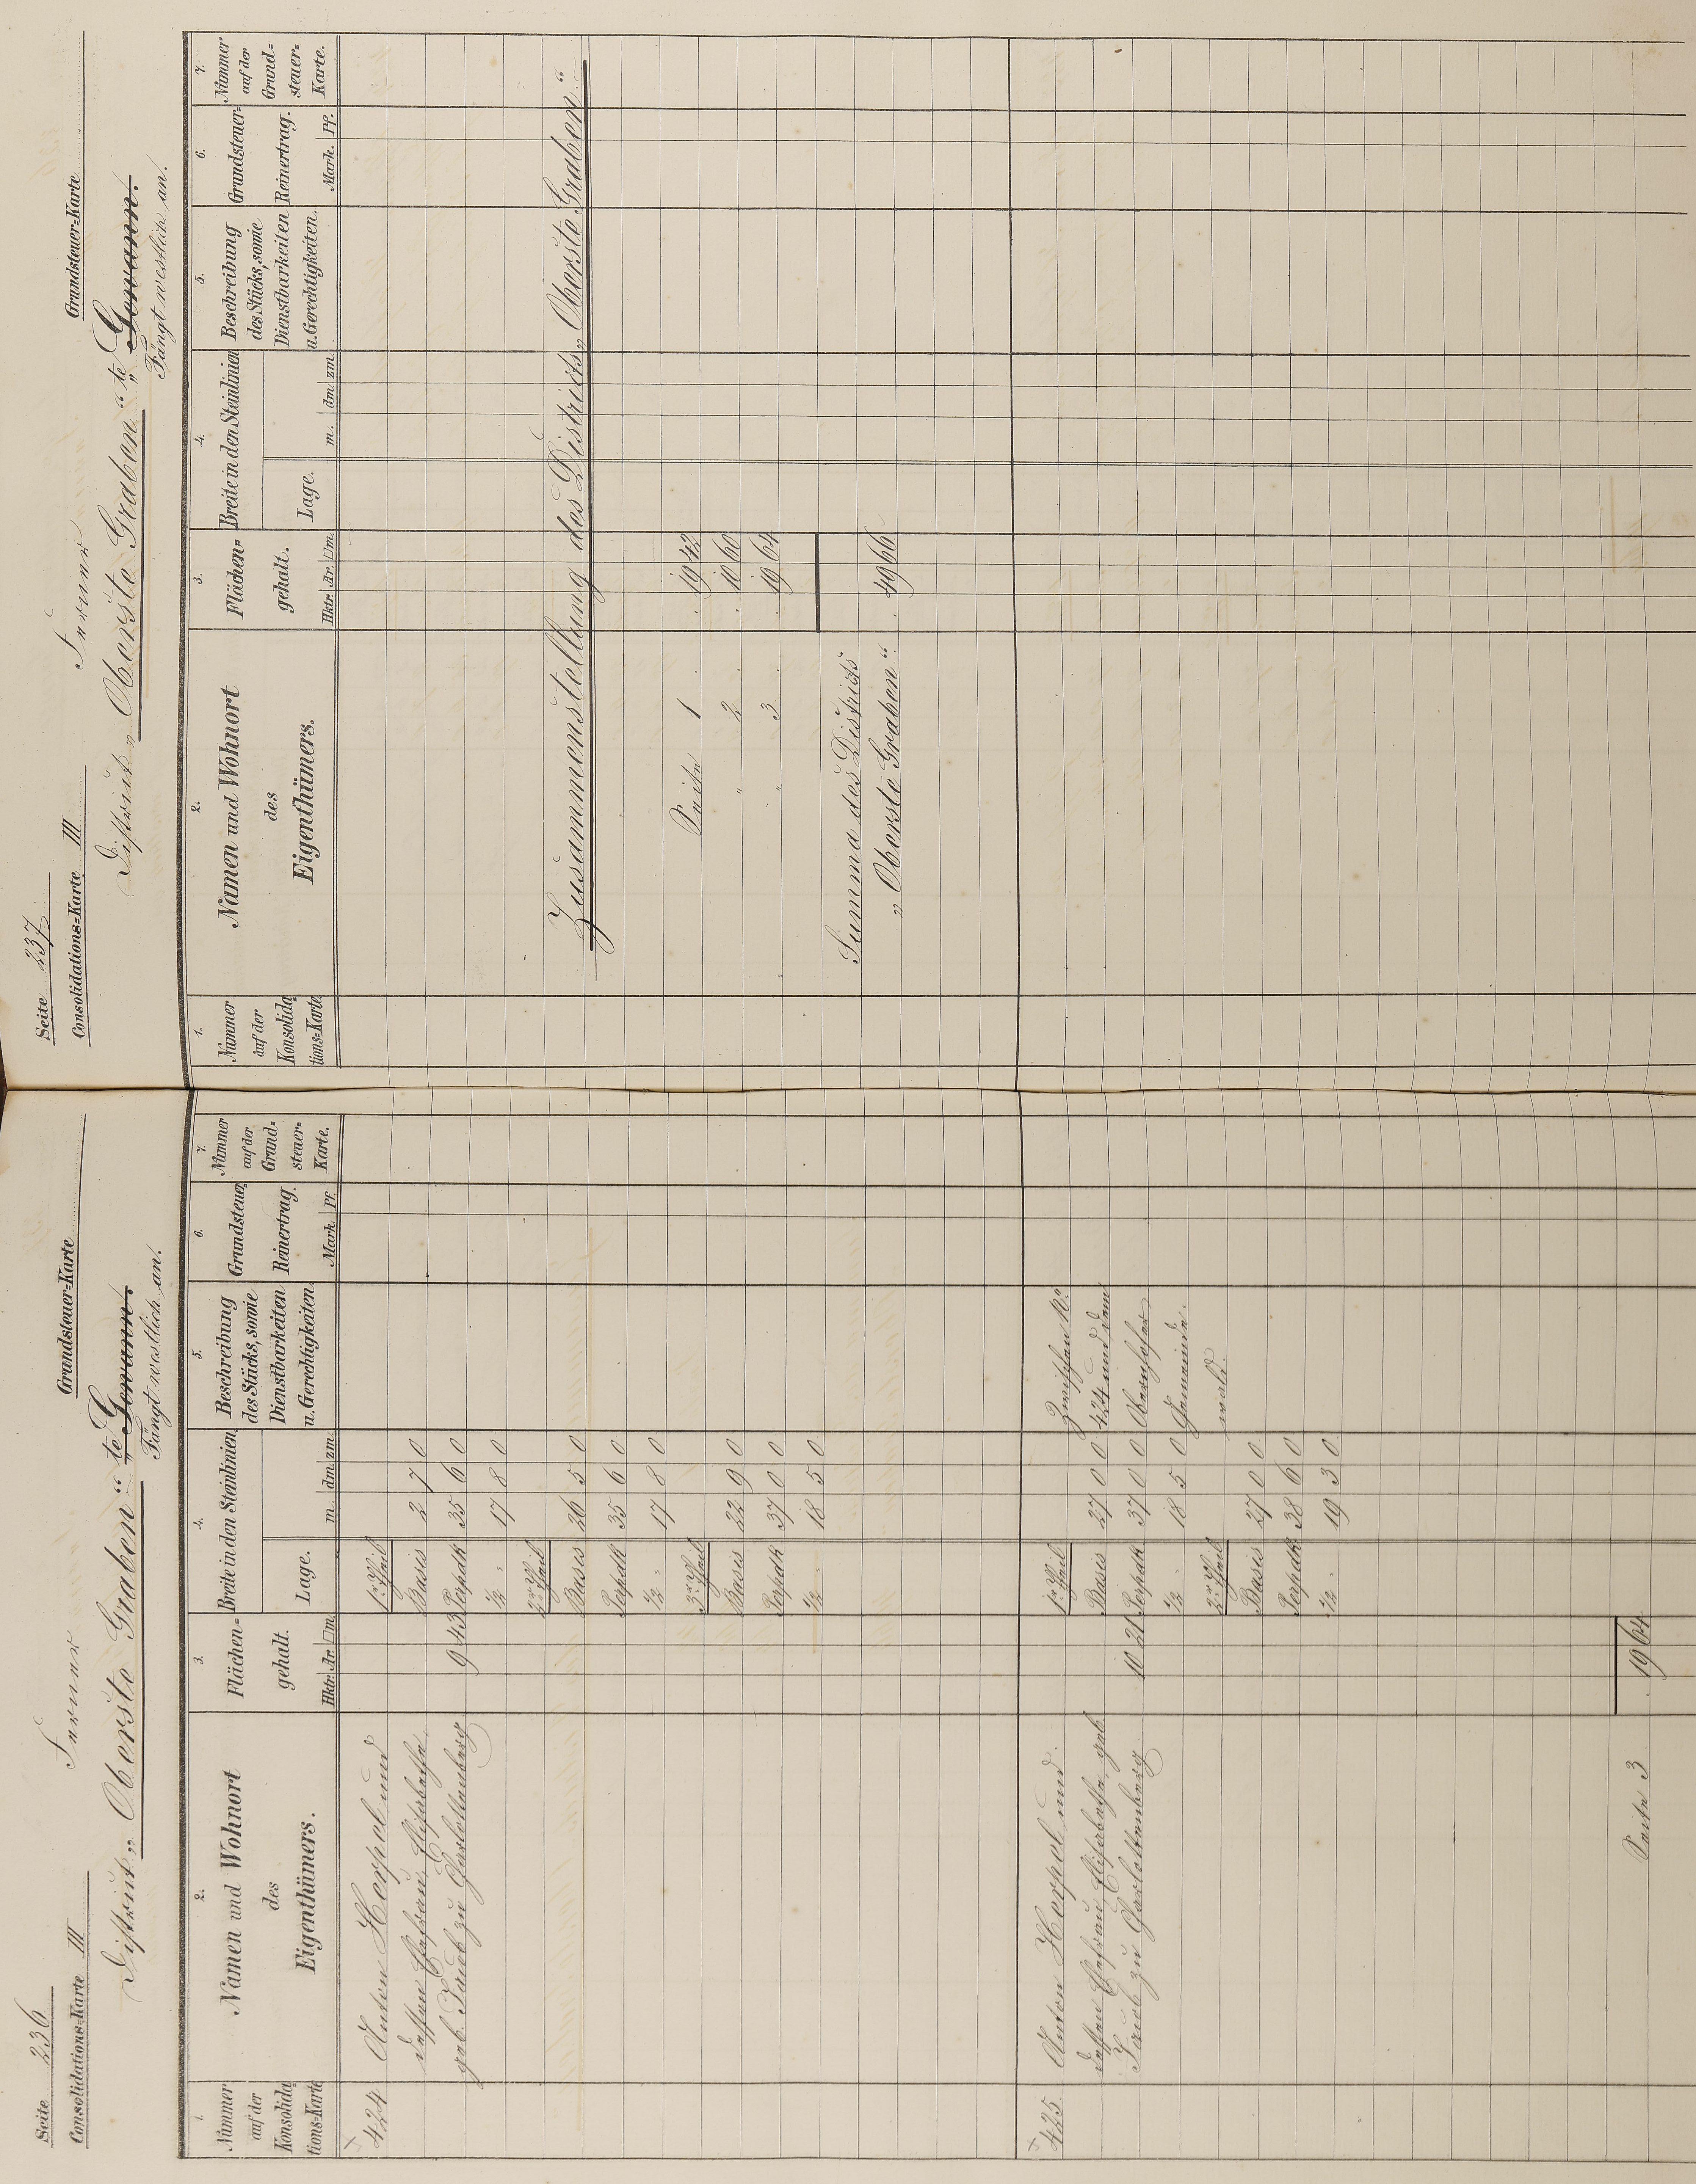 Seite 236
Consolidations=Karte III
Ferner
Grundsteuer=Karte
Distrikt „Oberste Graben“ te „Gewann.“
Fängt westlich an.
1.
Nummer
auf der
Konsolida
tions=Karte
2.
Namen und Wohnort
des
Eigenthümers.
3.
Flächen=
gehalt.
Hktr. Ar. □m.
4.
Breite in den Steinlinien
Lage.
m. dm. zm.
5.
Beschreibung
des Stücks, sowie
Dienstbarkeiten
u. Gerechtigkeiten
6.
Grundsteuer
Reinertrag.
Mark. Pf.
7.
Nummer
auf der
Grund=
steuer=
Karte.
424 Anton Horpel und 1r Theil
dessen Ehefrau, Elisabetha, Basis 2 7 0
geb. Faub zu Charlottenberg 9 43 Perpdk 35 6 0
1/2 " 17 8 0
2r Theil
Basis 26 5 0
Perpdk 35 6 0
1/2 " 17 8 0
3r Theil
Basis 22 9 0
Perpdk 37 0 0
1/2 " 18 5 0
425. Anton Horpel und 1r Theil Zwischen No.
dessen Ehefrau Elisabetha, geb. Basis 27 0 0 424 und dem
Faub zu Charlottenberg. 10 21 Perpdk 37 0 0
1/2 " 18 5 0 Gemeinde=
2r Theil wald.
Basis 27 0 0
Perpdk 38 6 0
1/2 " 19 3 0
Seite 3 . 19 64
Seite 237
Consolidations=Karte III
Ferner
Grundsteuer=Karte
Distrikt „Oberste Graben“ te „Gewann.“
Fängt westlich an.
1.
Nummer
auf der
Konsolida
tions=Karte
2.
Namen und Wohnort
des
Eigenthümers.
3.
Flächen=
gehalt.
Hktr. Ar. □m.
4.
Breite in den Steinlinien
Lage.
m. dm. zm.
5.
Beschreibung
des Stücks, sowie
Dienstbarkeiten
u. Gerechtigkeiten.
6.
Grundsteuer=
Reinertrag.
Mark. Pf.
7.
Nummer
auf der
Grund=
steuer=
Karte.
Zusammenstellung des Districts „Oberste Graben.“
Seite 1 . . 19 42
" 2 . . 10 60
" 3 . . 19 64
Summa des Districts
„Oberste Graben“ . 49 66